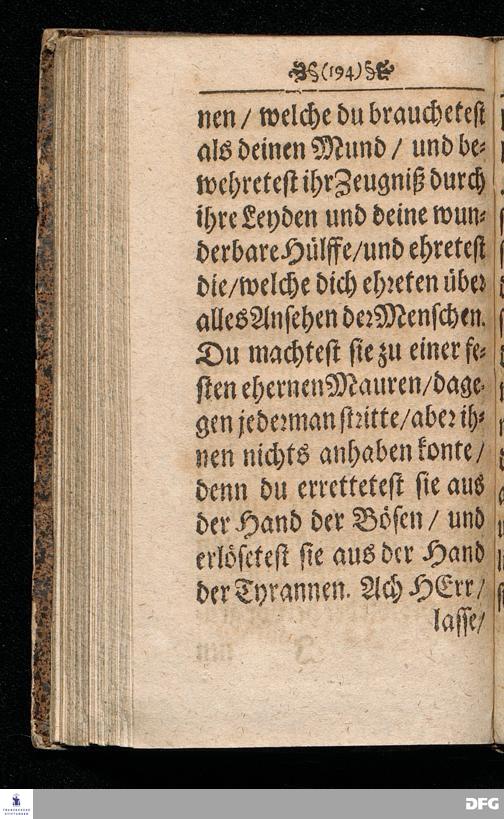 §(194)§
nen / welche du brauchetest
als deinen Mund / und be-
wehretest ihr Zeugniß durch
ihre Leyden und deine wun-
derbare Hülffe/und ehretest
die/welche dich ehreten über
alles Ansehen der Menschen.
Du machtest sie zu einer fe-
sten ehernen Mauren/dage-
gen jederman stritte/aber ih-
nen nichts anhaben konte/
denn du errettetest sie aus
der Hand der Bösen / und
erlösetest sie aus der Hand
der Tyrannen. Ach HErr/
lasse/
FRANCKESCHE
STIFTUNGEN
DFG